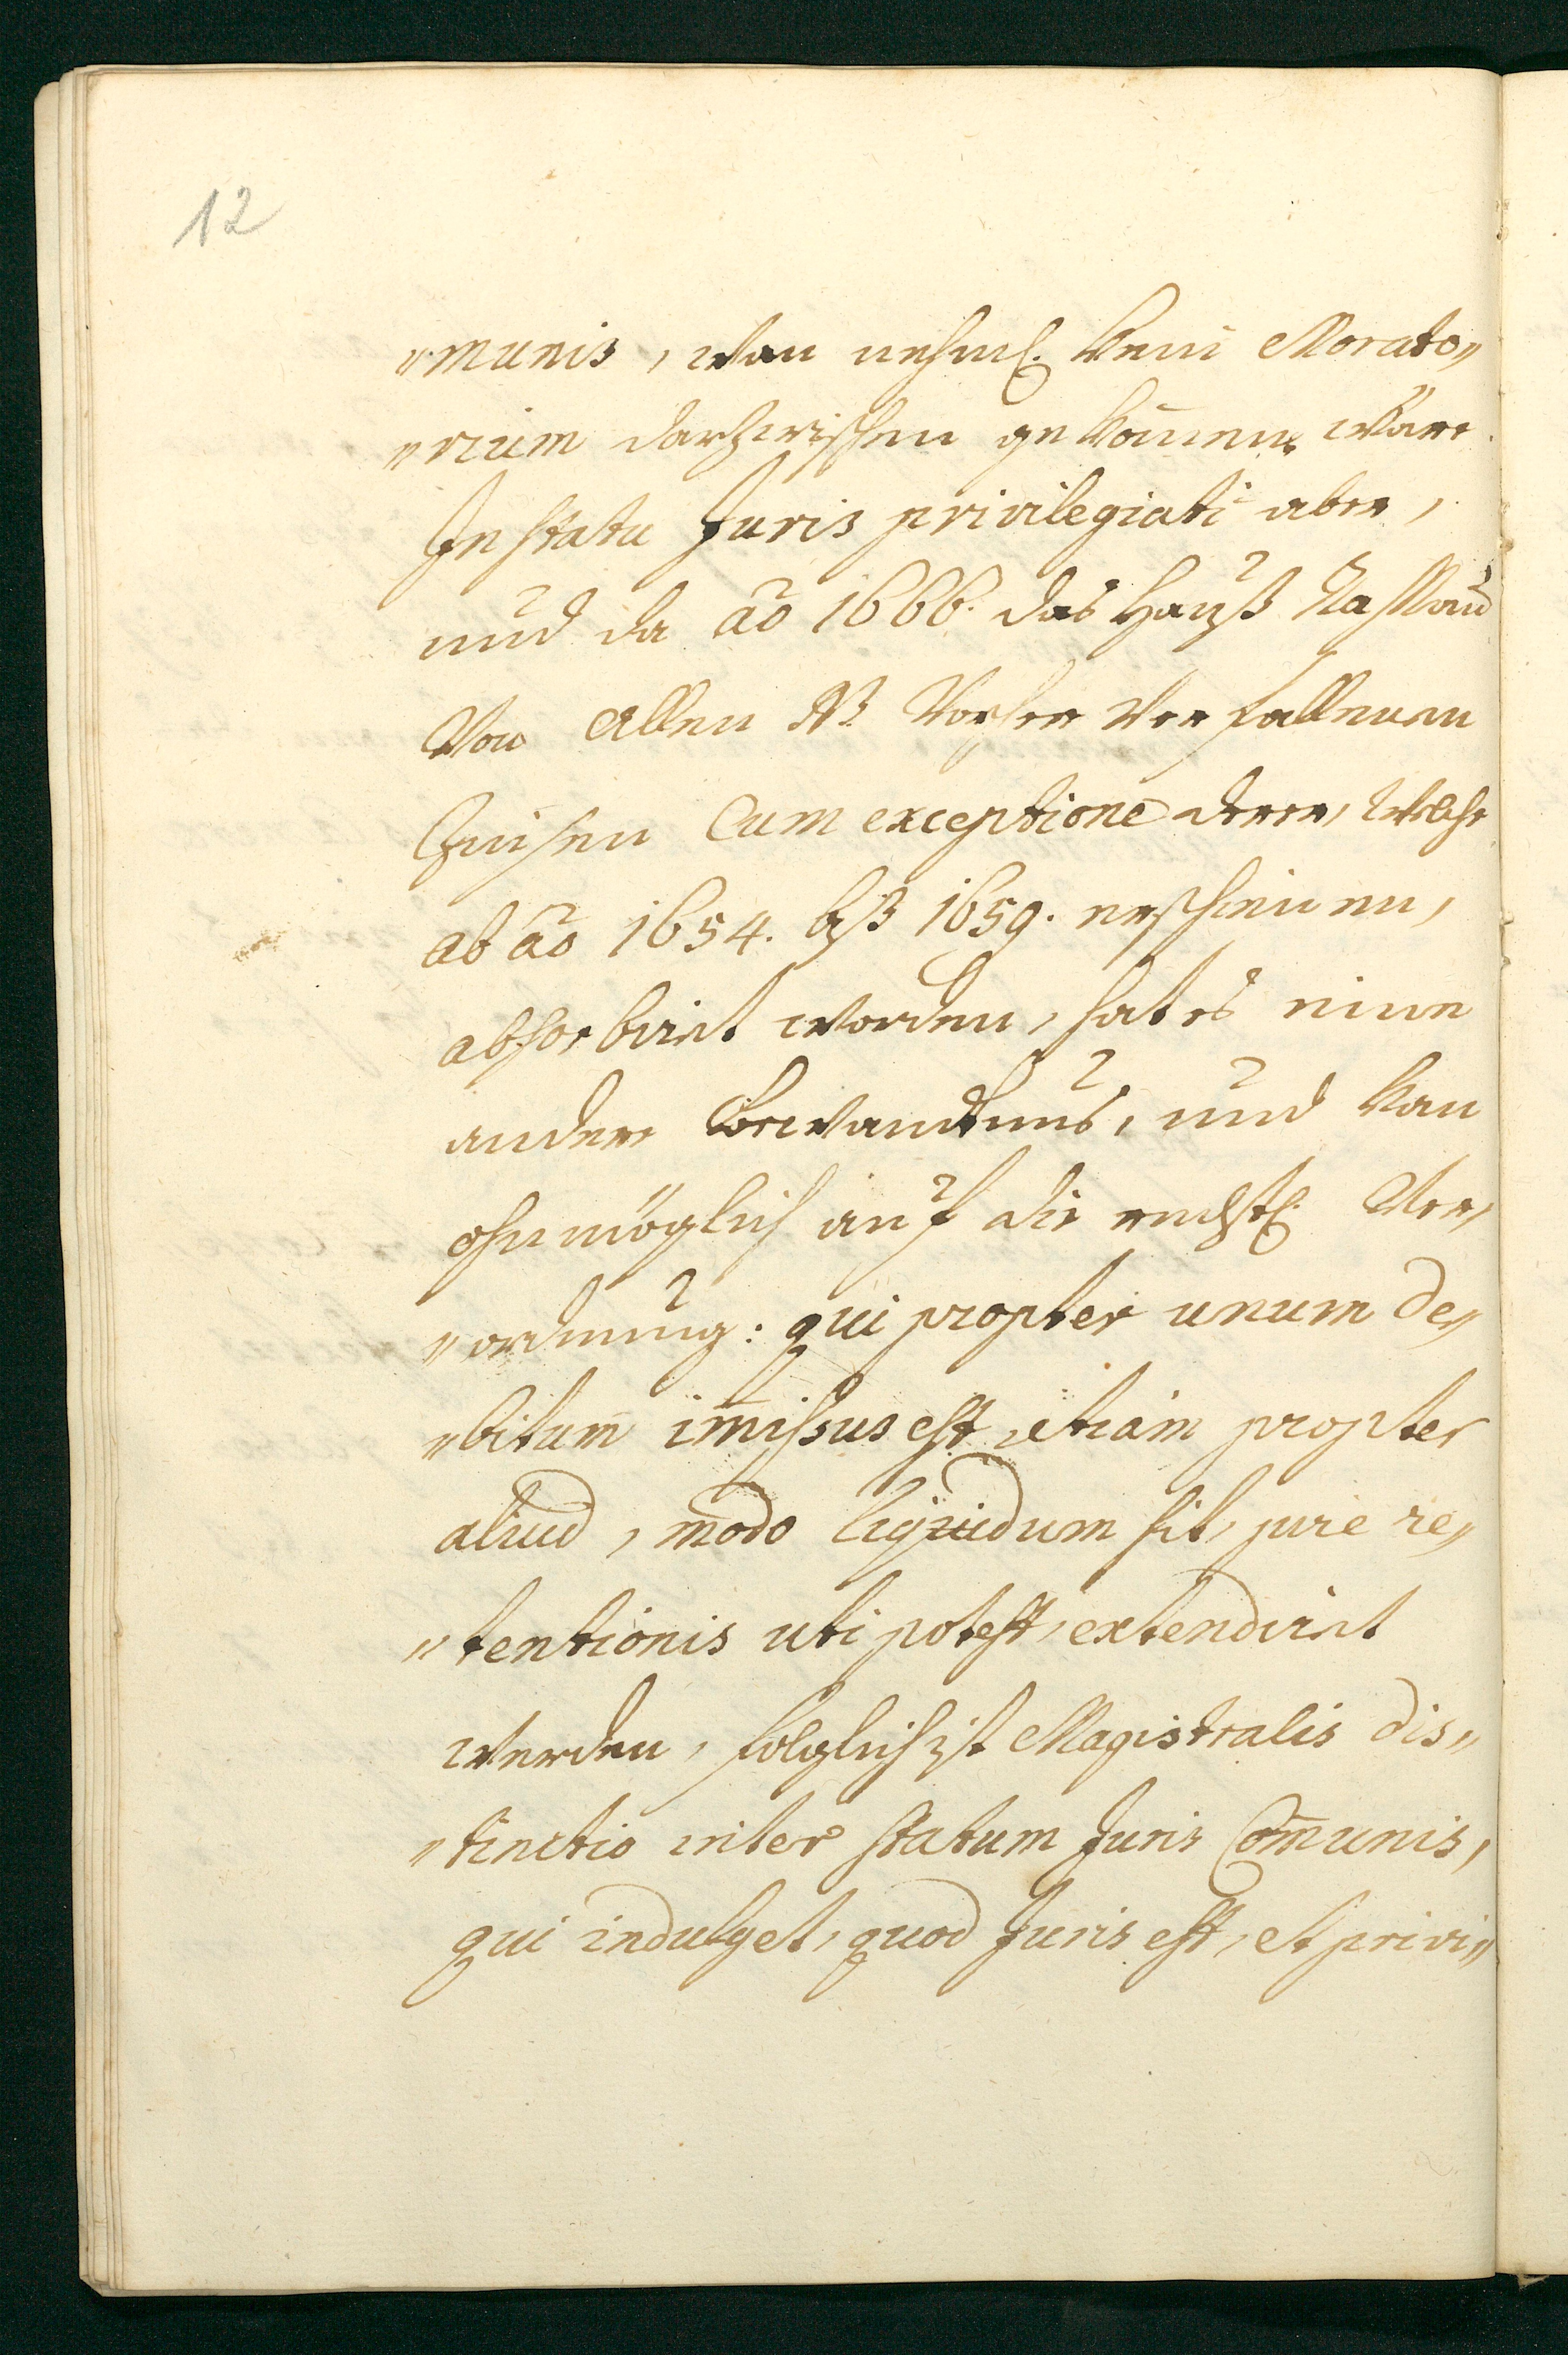 12
"munis, wan nehml. kein Morato"
"rium darzwischen gekom̄en, wäre.
In statu Juris privilegiati aber,
und da ao 1666. das Hauß Nassau
Von Allen NB Vorher Verfallenen
Zinsen Cum exceptione derer, Welche
ab ao 1654. biß 1659. erschienen,
absorbirt worden, hat es eine
andere Bewandtnus, und kan
ohnmöglich auf die rechtl. Ver,
"ordnung: qui propter unum de"
"bitum im̄issus est, etiam propter
aliud, modo liquidum sit, jure re"
"tentionis uti potest, extendirt
werden, folglich ist Magistralis dis"
"tinctio inter statum Juris Com̄unis,
qui indulget, quod Juris est, et privi"